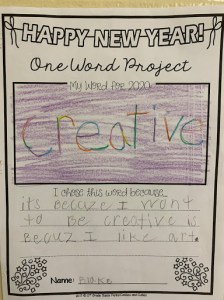 HAPPY NEW YEAR!
One Word Project
My Word for 2020
creative
I chose this word because
it's becuze I wont
to be creative is
becuz I like art.
Name: